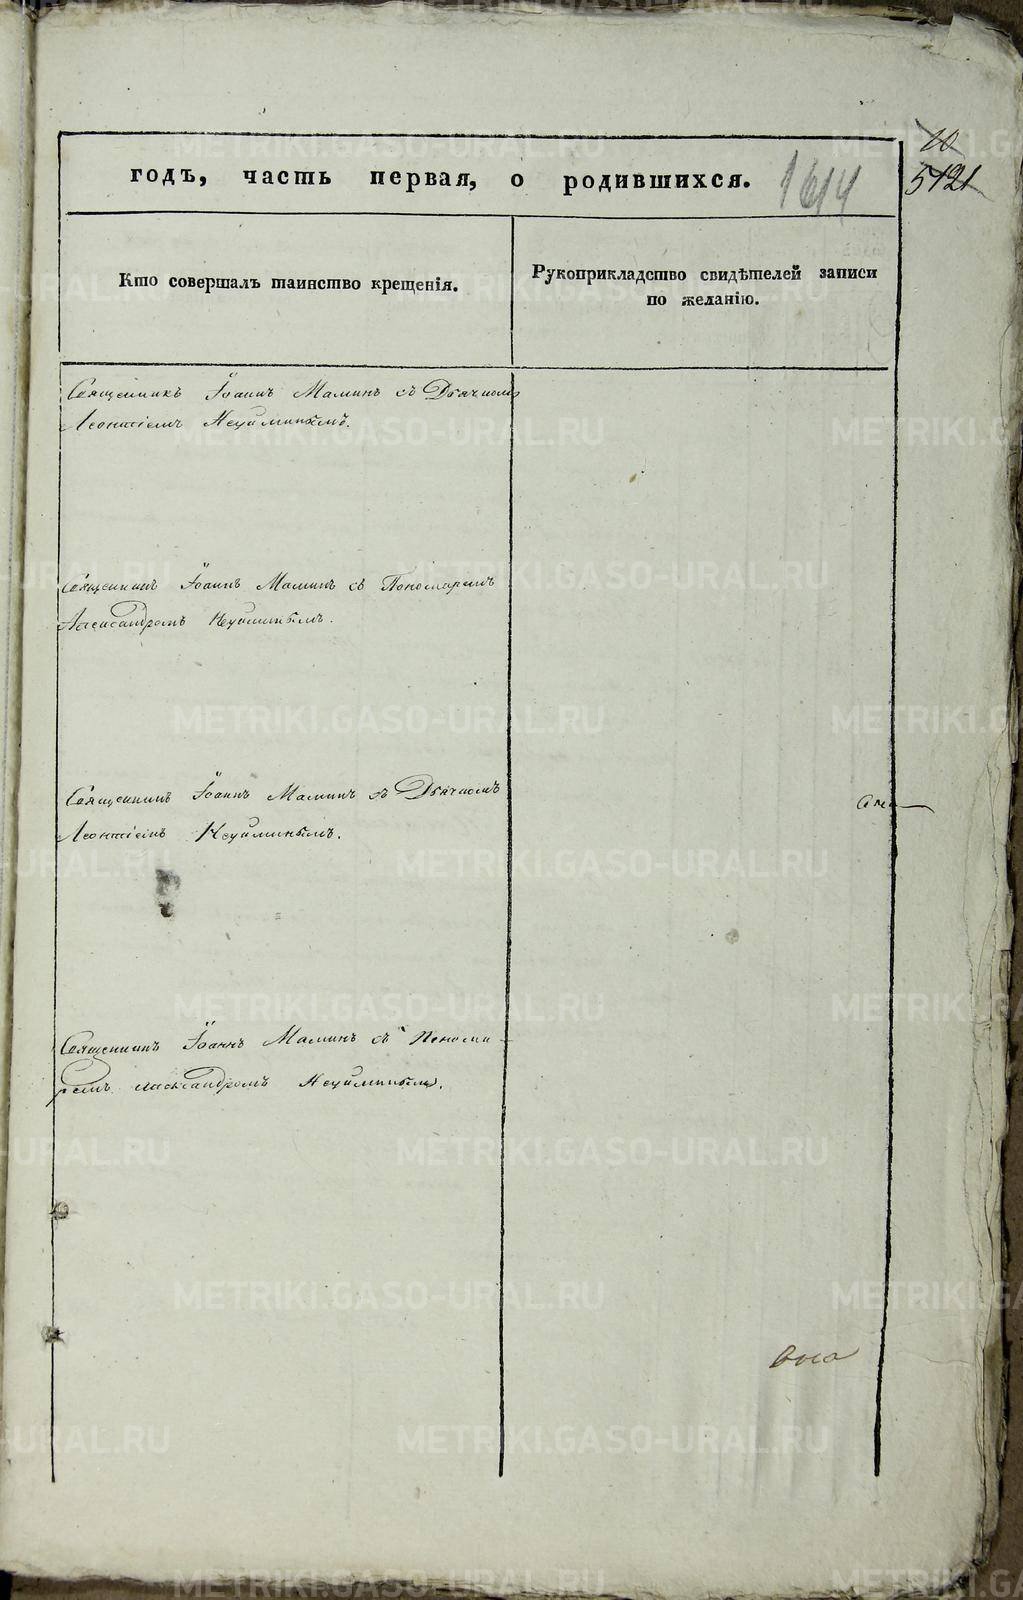 10
годъ, часть первая, о родившихся. 1614 5121
Кто совершалъ таинство крещенія.
Рукоприкладство свидѣтелей записи
по желанію.
Священникъ Іоаннъ Маминъ съ Дьячкомъ
Леонтіемъ Неуйминымъ.
Священникъ Іоаннъ Маминъ съ Пономаремъ
Александромъ Неуйминымъ.
Священникъ Іоаннъ Маминъ съ Дьячкомъ
Леонтіемъ Неуйминымъ.
Священникъ Іоаннъ Маминъ съ Понома-
ремъ Александромъ Неуйминымъ.
METRIKI.GASO-URAL.RU